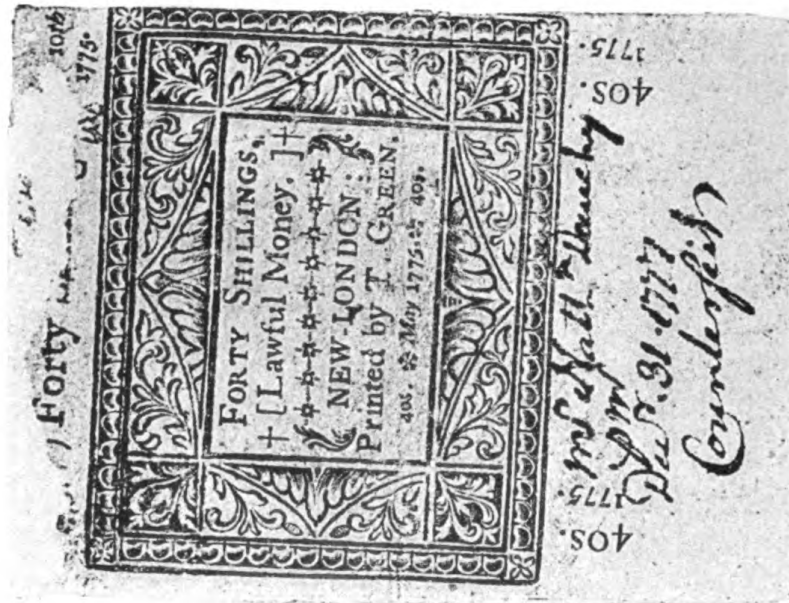 Forty
10th
1775.
FORTY SHILLINGS,
† [Lawful Money.] †
NEW-LONDON:
Printed by T. GREEN.
40s. May 1775. 40s.
40S. 1775.
1775. 40S.
Mr
Decr. 31. 1777
Counterfeit